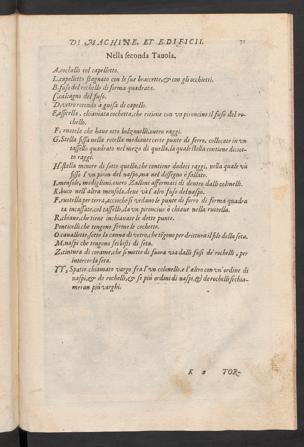 DI MACHINE, ET EDIFICII. 75
Nella seconda Tauola.
A, rochello col capelletto.
L, capelletto stagnato con le sue braccette, & con gli occhietti.
B, fuso del rochello di forma quadrata.
C, calcagno del fuso.
D, vetro rotondo a guisa di capello.
E, assicella, chiamata cochetta, che ritiene con vn pironcino il fuso del ro-
chello.
F, rotella che hauo otto bolzonelli, ouero raggi.
G, Stella fissa nella rotella mediante certe punte di ferro, collocate in vn
tassello quadrato nel mezo di quella, la quale stella contiene diciot-
to raggi.
H, stella minore di sotto quella, che contiene dodeci raggi, nella quale và
fisso l'vn piron del naspo, ma nel dissegno è fallato.
I, mensole, modiglioni, ouero Zaltini affermati di dentro dalli colonelli.
K, buco nell'altra mensola, doue và l'altro fuso del naspo.
P, rouetella per terra, acciochè si vedano le punte di ferro di forma quadra
ta incassate, col tassello, da vn pironcino è chiaue nella rotella.
R, chiaue, che tiene inchiauate le dette punte.
Ponticelli che tengono ferme le cochette.
O, caualletto, sotto la canna di vetro, che tẽgono per drittura il filo della seta.
M, naspi che tengono sei bisti di seta.
Z, cintura di corame, che si mette di fuora via dalli fusi de' rochelli, per
intorcer la seta.
YY, Spatio chiamato vargo fra l'vn colonello, e l'altro con vn'ordine di
naspi, & de rochelli, & se più ordini di naspi, & de rochelli si chia-
meran più varghi.
K 2 TOR-